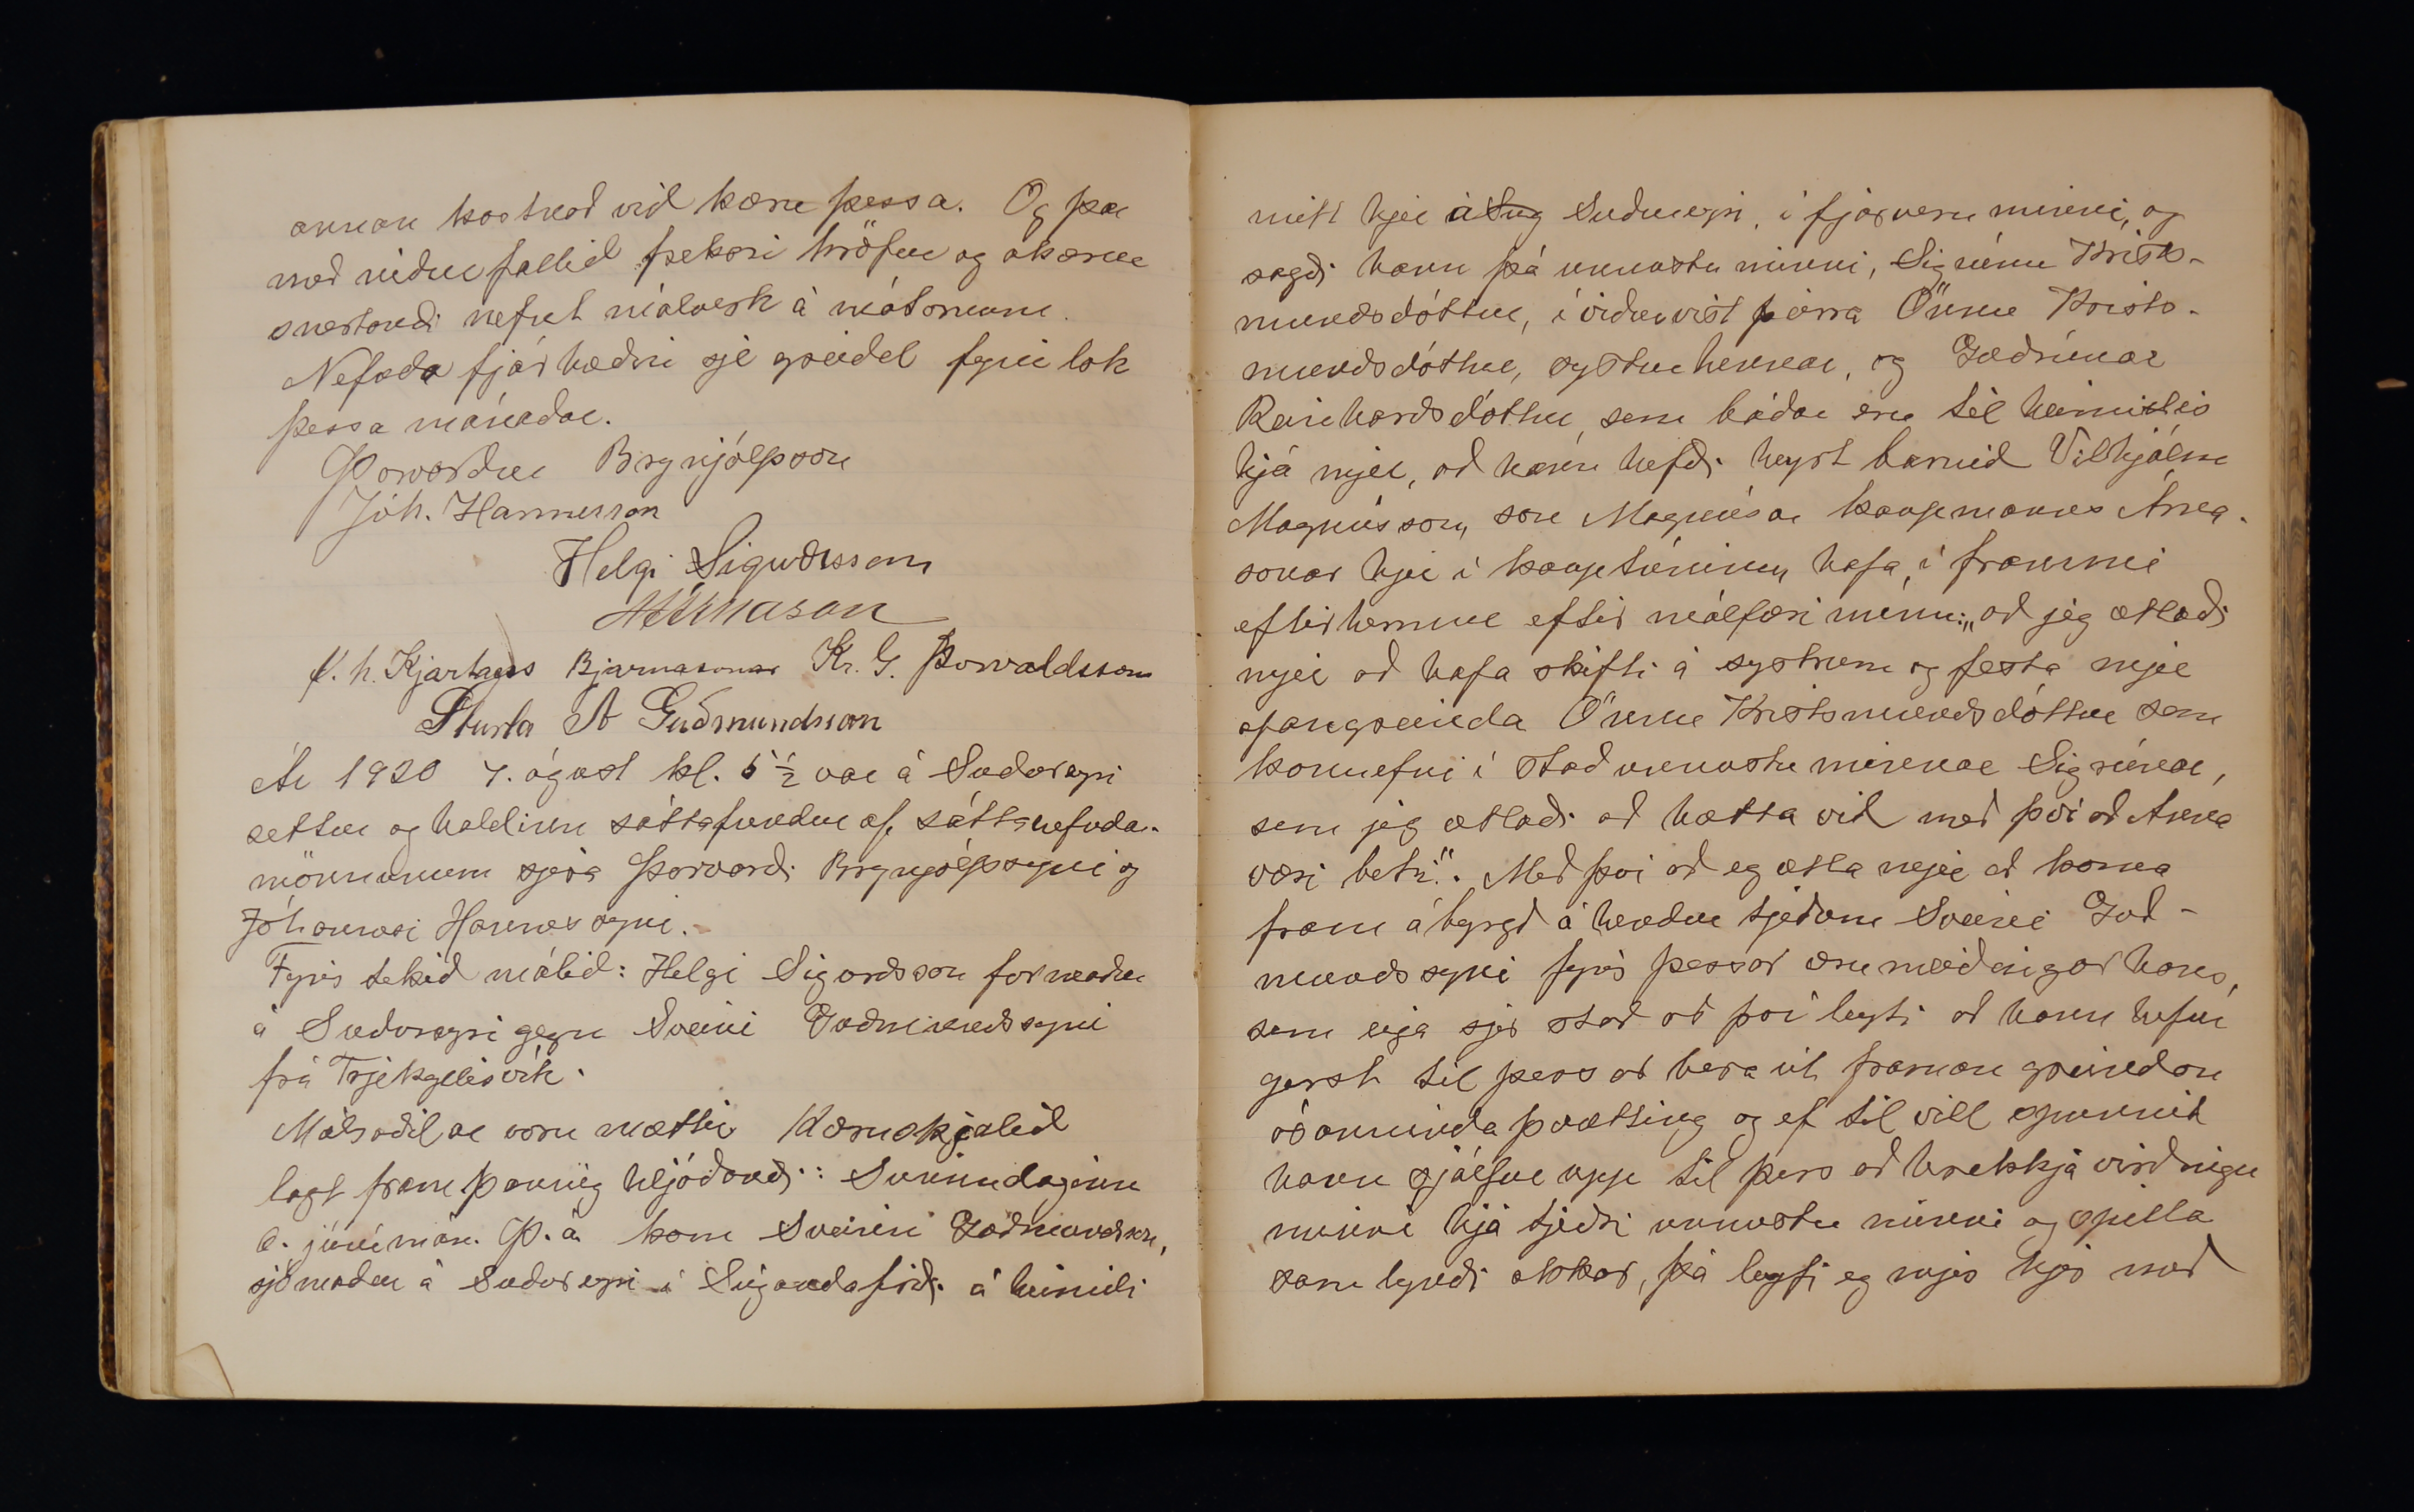 annan kostnað við kæru þessa. Og þar
með niður fallið frekari kröfur og ákærur
snertandi nefnt málverk á mótornum.
Nefnda fjárhæð sje greidd fyrir lok
þessa mánaðar.
Þorvarður Brynjólfsson
Jóh. Hannesson
Helgi Sigurðsson
f. h. Kjartans Bjarnasonar Kr. G. Þorvaldsson
Sturla A Guðmundsson
Ár 1920 7. ágúst kl. 5 ½ var á Suðureyri
settur og haldinn sáttafundur af sáttanefnda-
mönnunum sjera Þorvarði Brynjólfssyni og
Jóhannesi Hannessyni.
Fyrir tekið málið: Helgi Sigurðsson formaður
á Suðureyri gegn Sveini Guðmundssyni
frá Trjekyllisvík.
Málsaðilar voru mættir Kæruskjalið
lagt fram þannig hljóðandi: Sunnudaginn
6. júnímán. þ. á. kom Sveinn Guðmundsson,
sjómaður á Suðureyri í Súgandafirði á heimili
mitt hjer á Súg Suðureyri, í fjarveru minni, og
sagði hann þá unnustu minni, Sigrúnu Krist-
mundsdóttur, í viðurvist þeirra Önnu Krist-
mundsdóttur, systur hennar, og Guðrúnar
Reinharðsdóttur, sem báðar eru til heimilis
hjá mjer, að hann hefði heyrt barnið Vilhjálm
Magnússon, son Magnúsar kaupmanns Árna-
sonar hjer í kauptúninu, hafa í frammi
eftirhermur eftir málfæri mínu: „að jeg ætlaði
mjer að hafa skifti á systrum og festa mjer
ofangreinda Önnu Kristmundsdóttur sem
konuefni í stað unnustu minnar Sigrúnar,
sem jeg ætlaði að hætta við með því að Anna
væri betri“. Með því að eg ætla mjer að koma
fram ábyrgð á hendur tjeðum Sveini Guð-
mundssyni fyrir þessar ærumeiðingar hans,
sem eiga sjer stað að því leyti að hann hefur
gerst til þess að bera út framan greindan
óanninda þvætting og ef til vill spunnið
hann sjálfur upp til þess að hnekkja virðingu
minni hjá tjeðri unnustu minni og spilla
samlyndi okkar, þá leyfi eg mjer hjer með